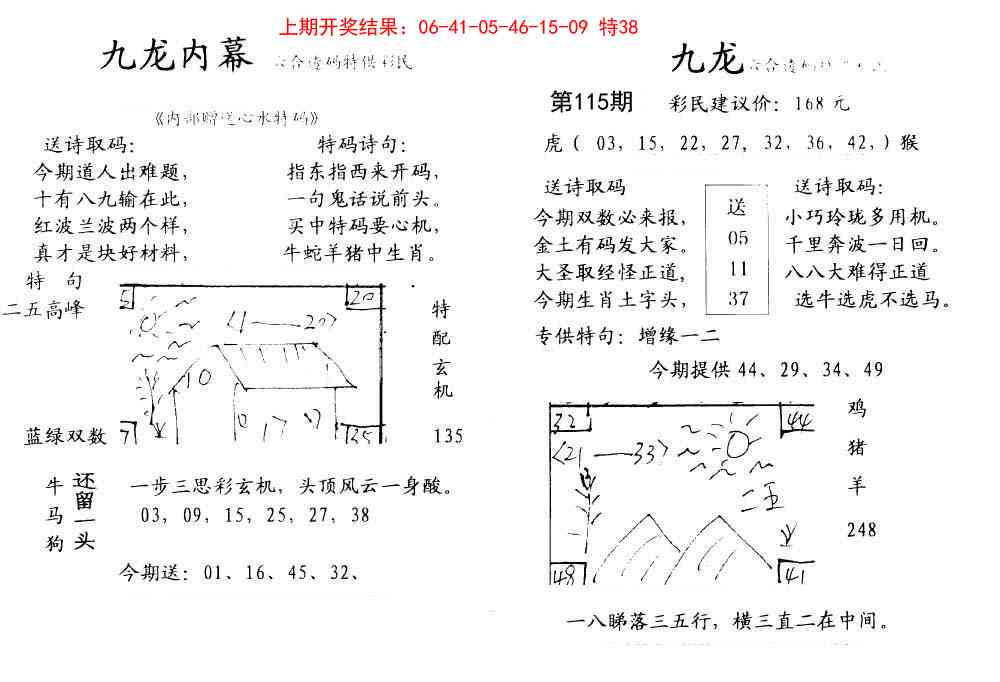 上期开奖结果：06-41-05-46-15-09 特38
九龙内幕 六合透码特供彩民
《内部赠送心水特码》
送诗取码：
今期道人出难题，
十有八九输在此，
红波兰波两个样，
真才是块好材料，
特码诗句：
指东指西来开码，
一句鬼话说前头。
买中特码要心机，
牛蛇羊猪中生肖。
特 句
二五高峰
蓝绿双数
5
20
<1——20>
10
0
17
19
71
35
特
配
玄
机
135
牛
马
狗
还
留
一
头
一步三思彩玄机，头顶风云一身酸。
03，09，15，25，27，38
今期送：01、16、45、32、
九龙 六合透码
第115期 彩民建议价：168元
虎（ 03，15，22，27，32，36，42，）猴
送诗取码
今期双数必来报，
金土有码发大家。
大圣取经怪正道，
今期生肖土字头，
送
05
11
37
送诗取码：
小巧玲珑多用机。
千里奔波一日回。
八八大难得正道
选牛选虎不选马。
专供特句：增缘一二
今期提供 44、29、34、49
32
44
<21——33>
13
二五
48
41
鸡
猪
羊
248
一八睇落三五行，横三直二在中间。